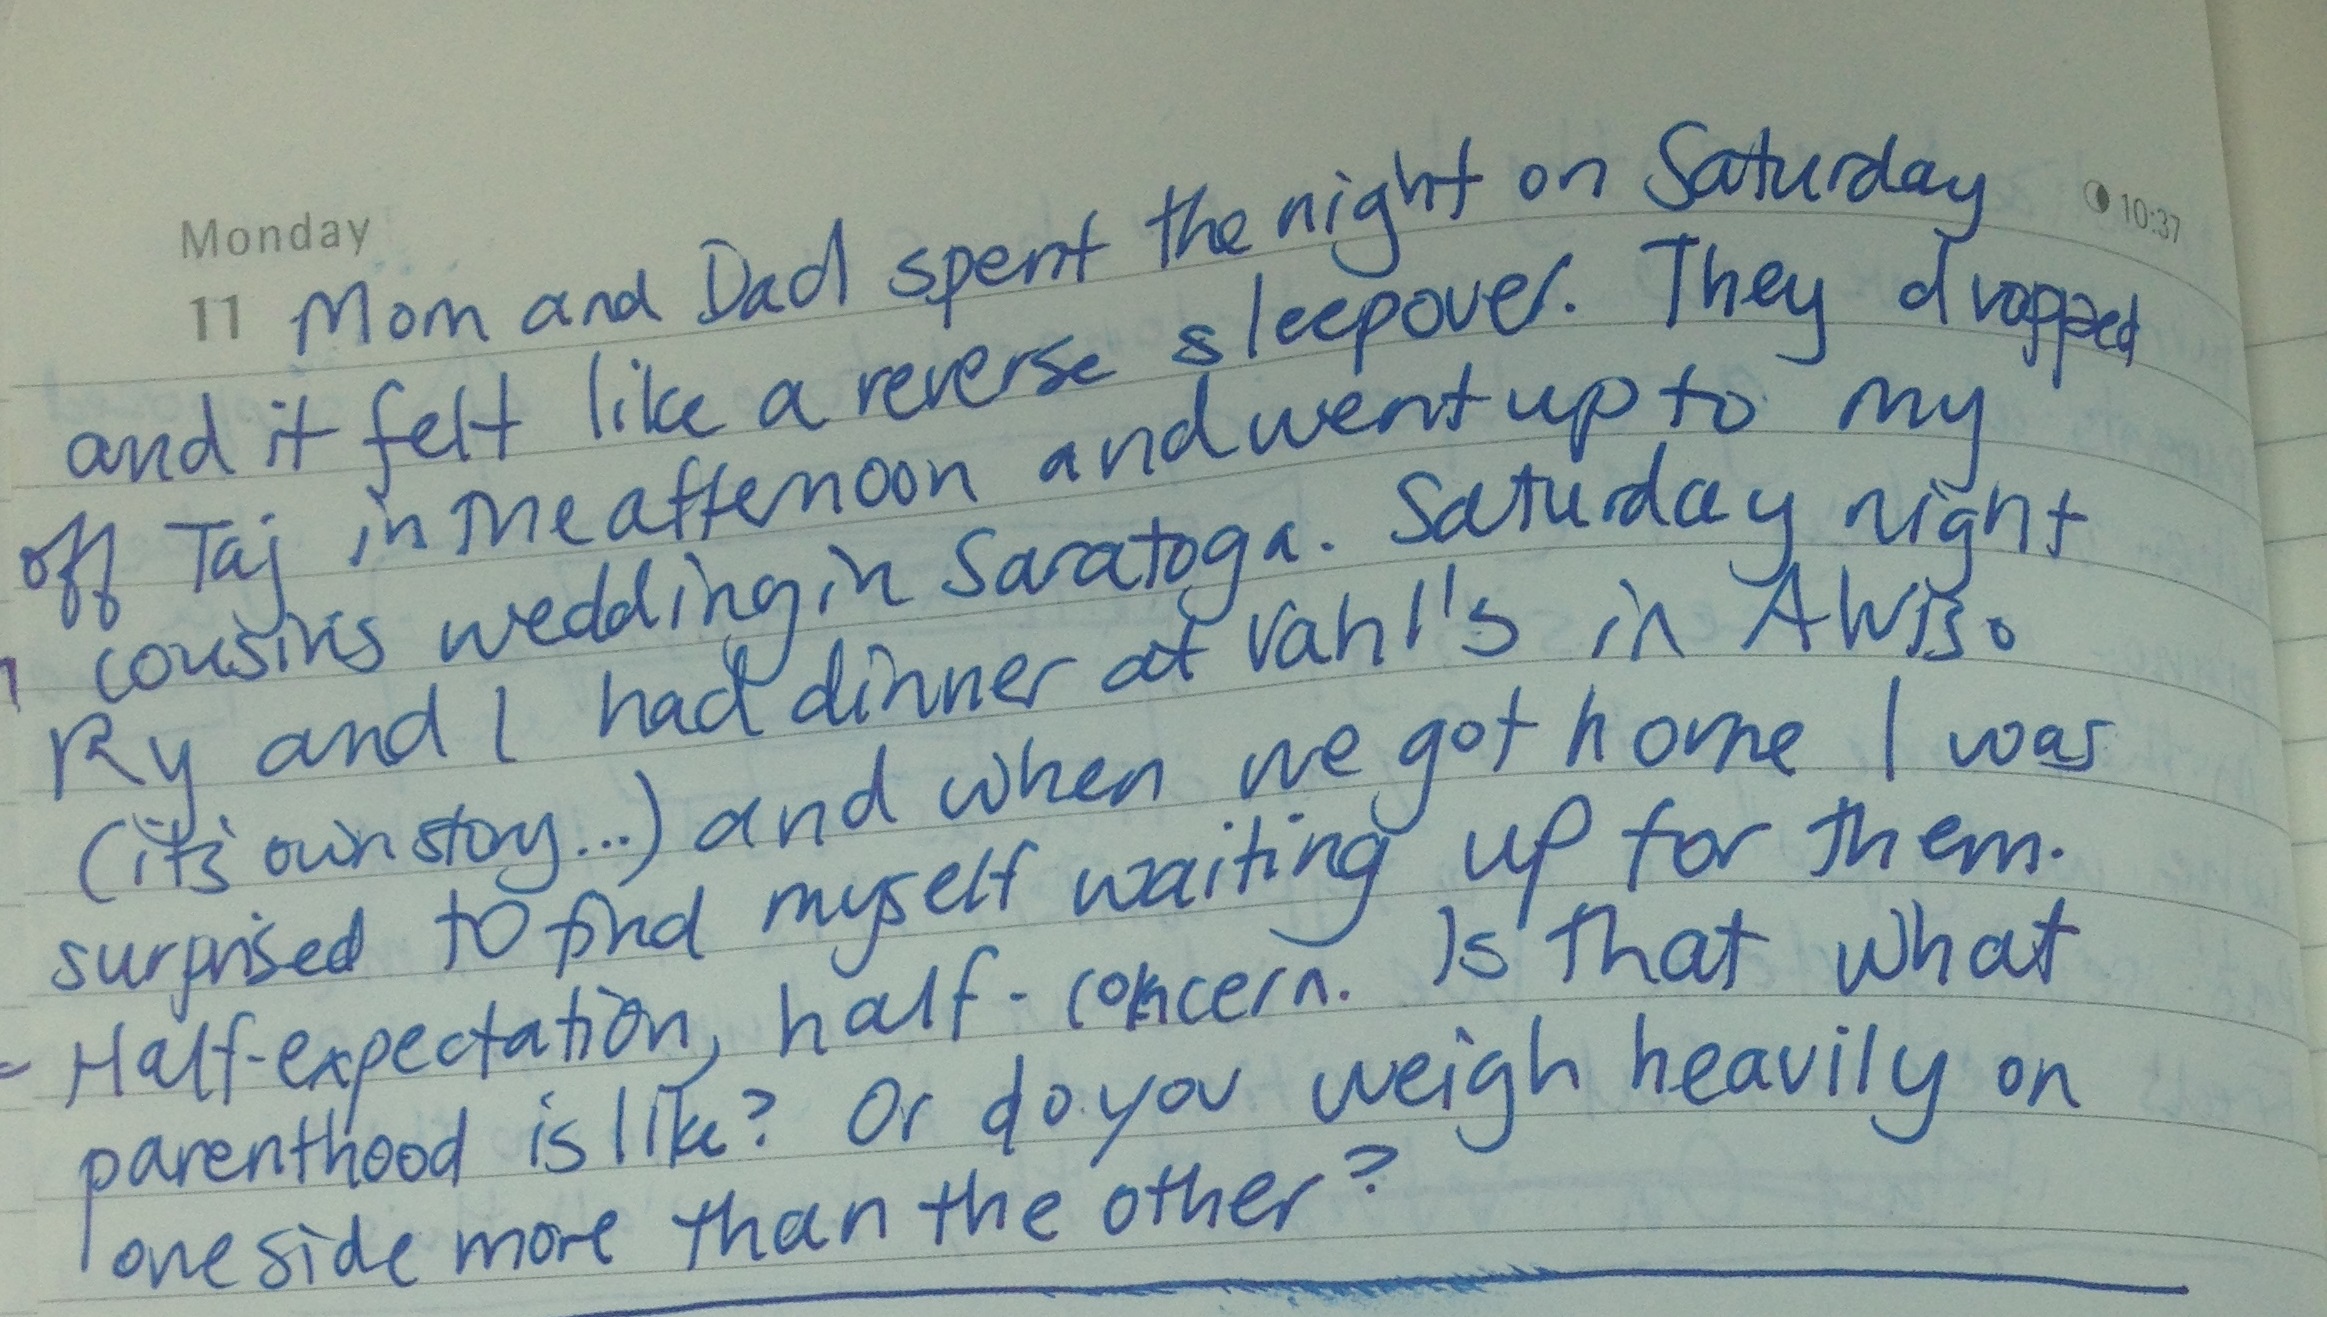 Monday
10:37
11 Mom and Dad spent the night on Saturday
and it felt like a reverse sleepover. They dropped
off Taj in the afternoon and went up to my
cousin's wedding in Saratoga. Saturday night
Ry and I had dinner at Vahl's in
(it's own story...) and when we got home I was
surprised to find myself waiting up for them.
Half-expectation, half-concern. Is that what
parenthood is like? Or do you weigh heavily on
one side more than the other?